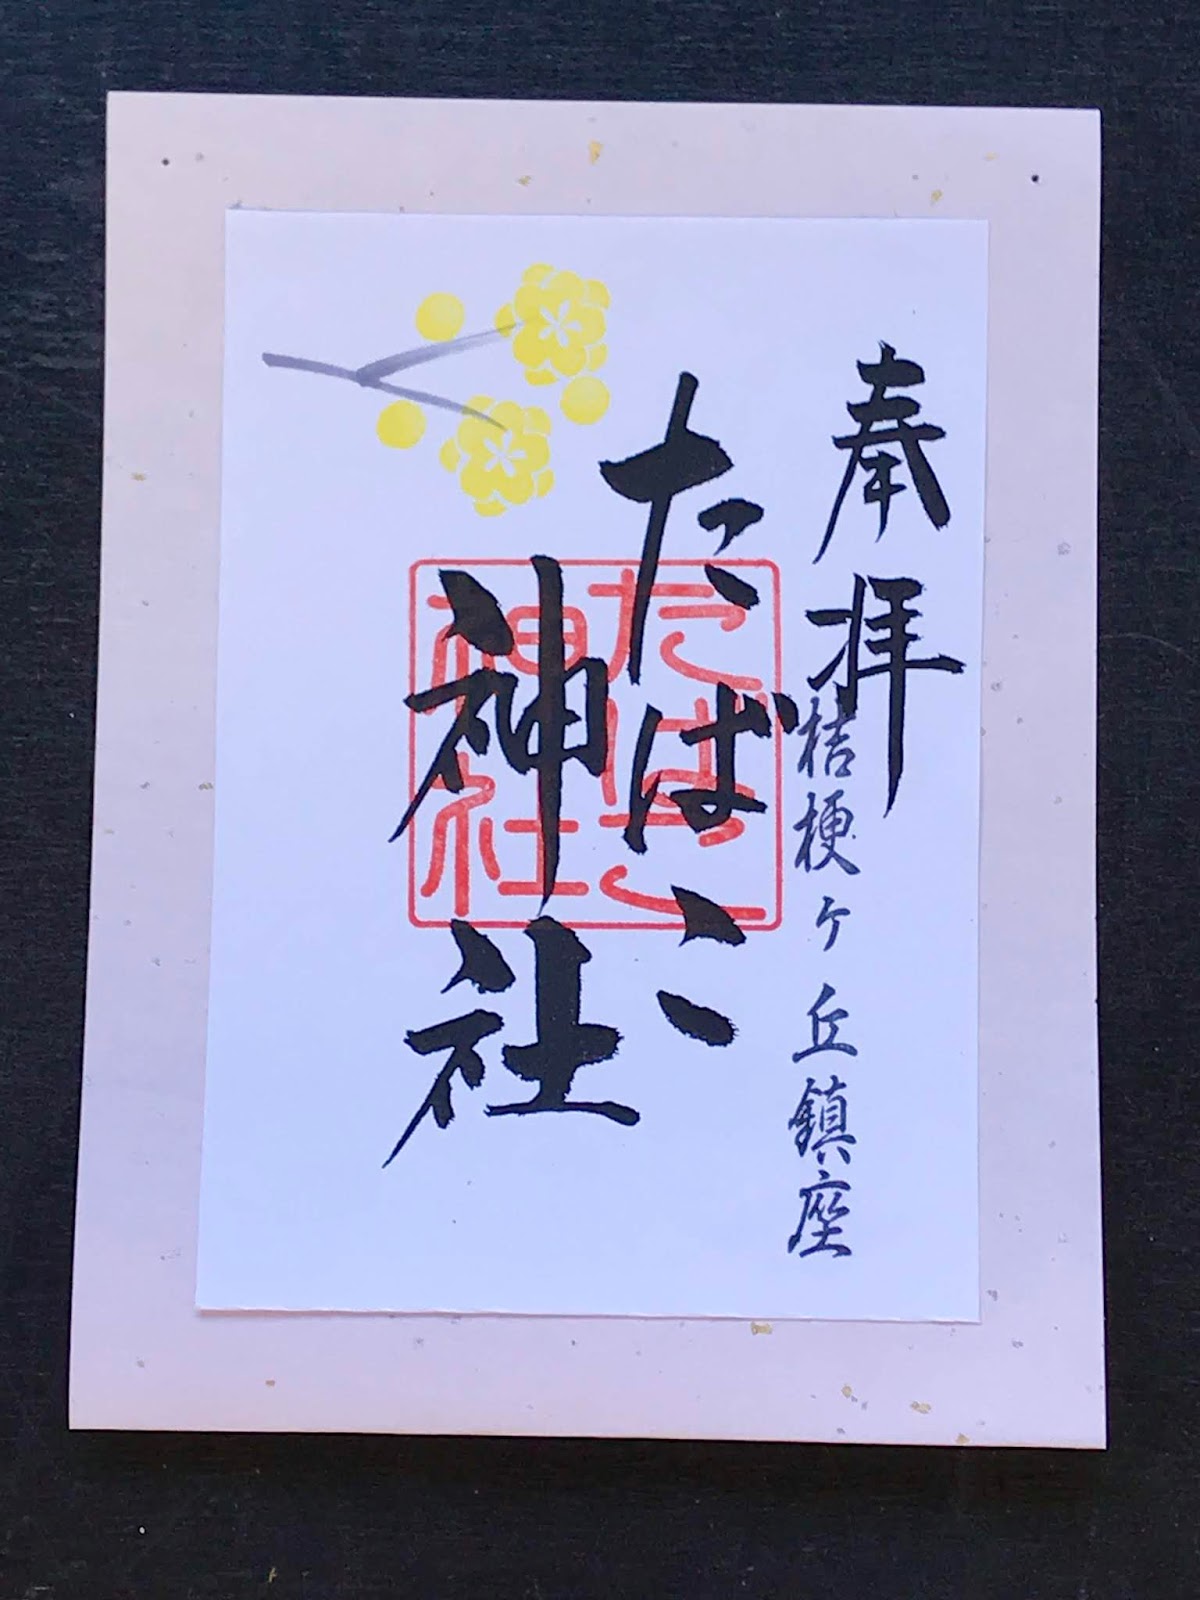 奉拝
桔梗ヶ丘鎮座
たばこ
神社
たばこ
神社